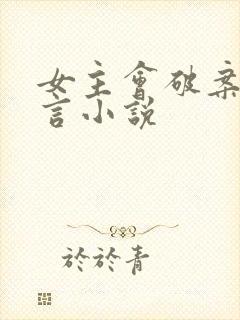 女主會破案
言小說
於於青